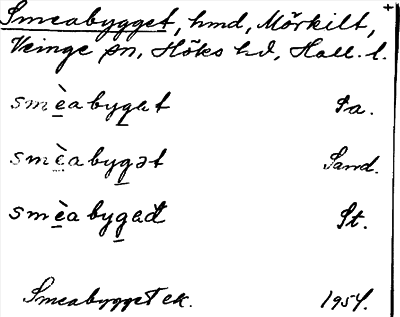 Smeabygget, hmd, Mörkilt,
Veinge sn, Höks hd, Hall. l.
smèabygat Pa.
smèabygət Sand.
smèabygađ St.
Smeabygget ek. 1954.